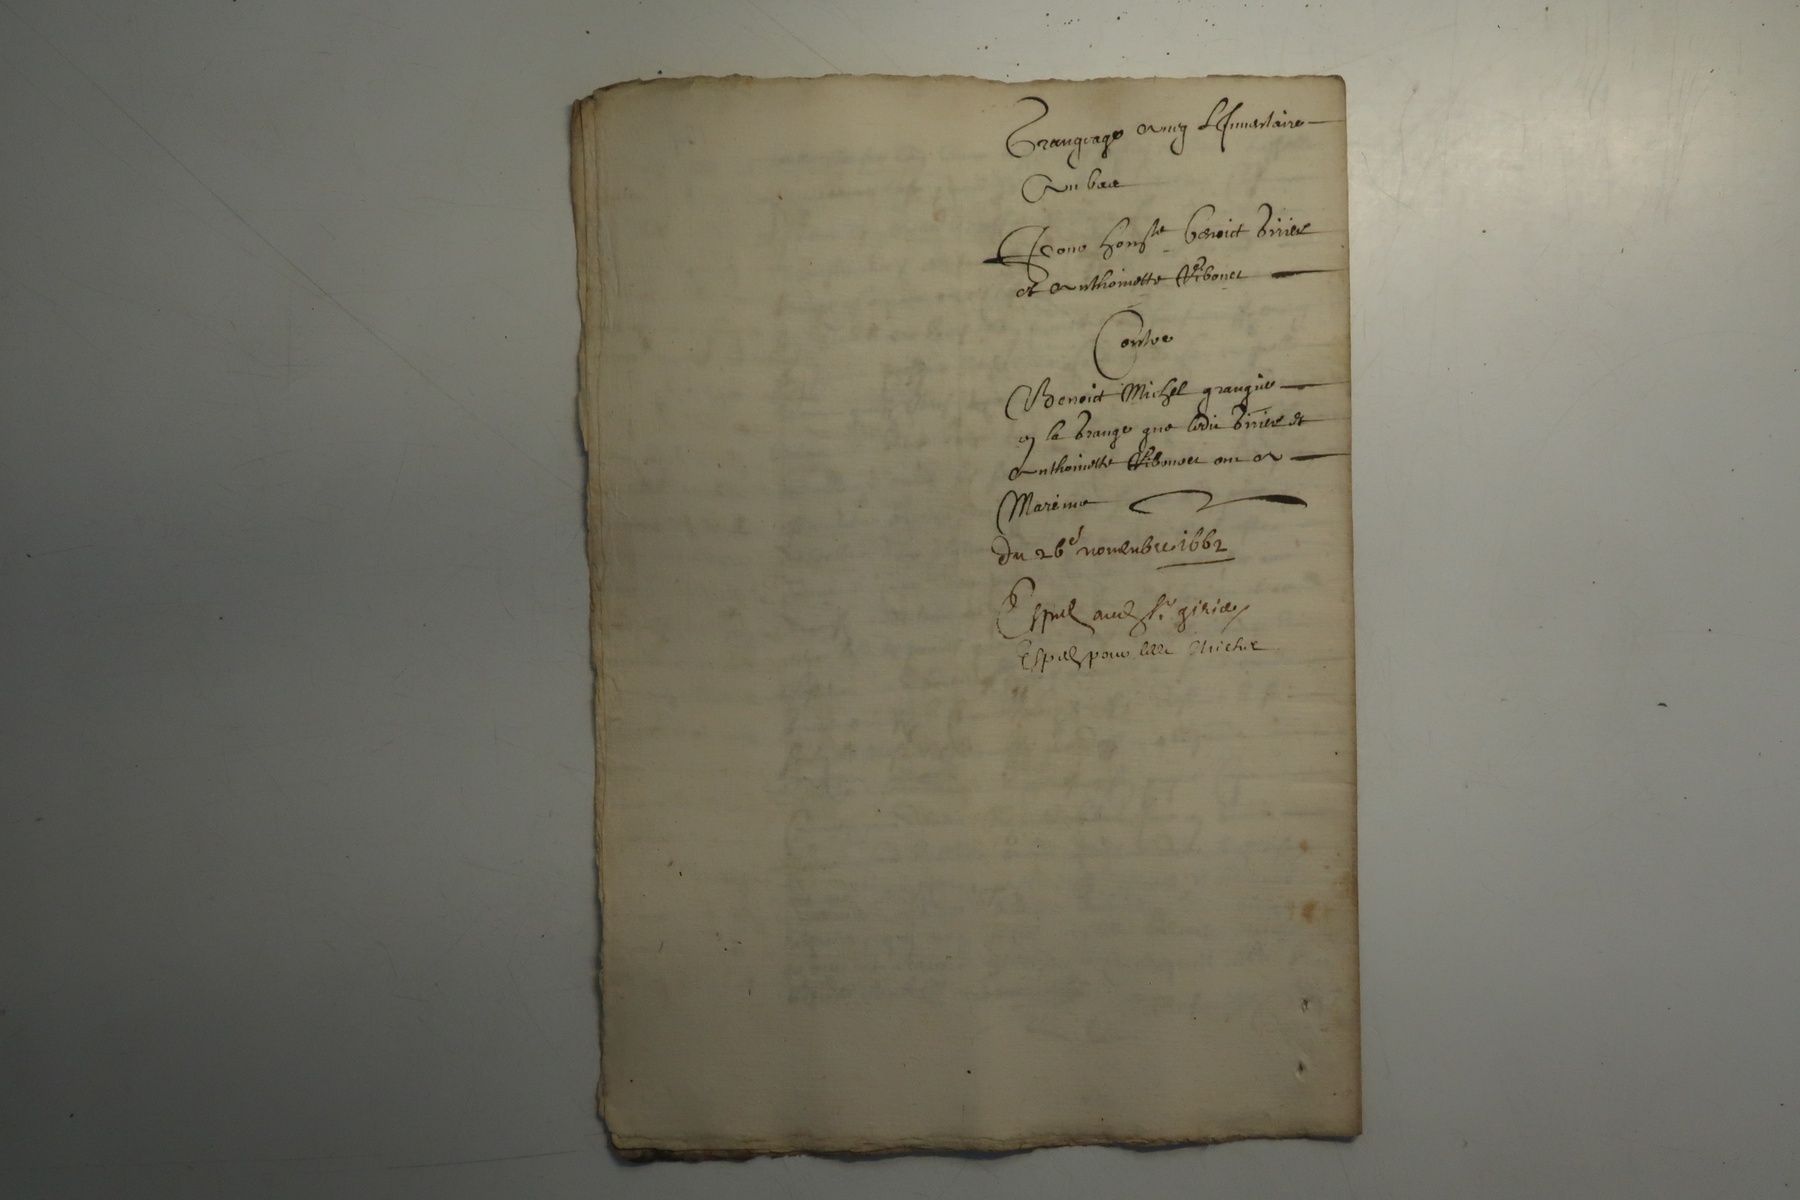 Grangeage avecq L'Inventaire
Au bas
Pour honste benoict Girier
et Anthoinette Ribouet
Contre
Benoict Michel grangier
en la Grange que ledit Girier et
Anthoinette Ribouet ont a
Mareine
du 26e novembre 1662
Espel avec Sr girier
Espel pour led Michel